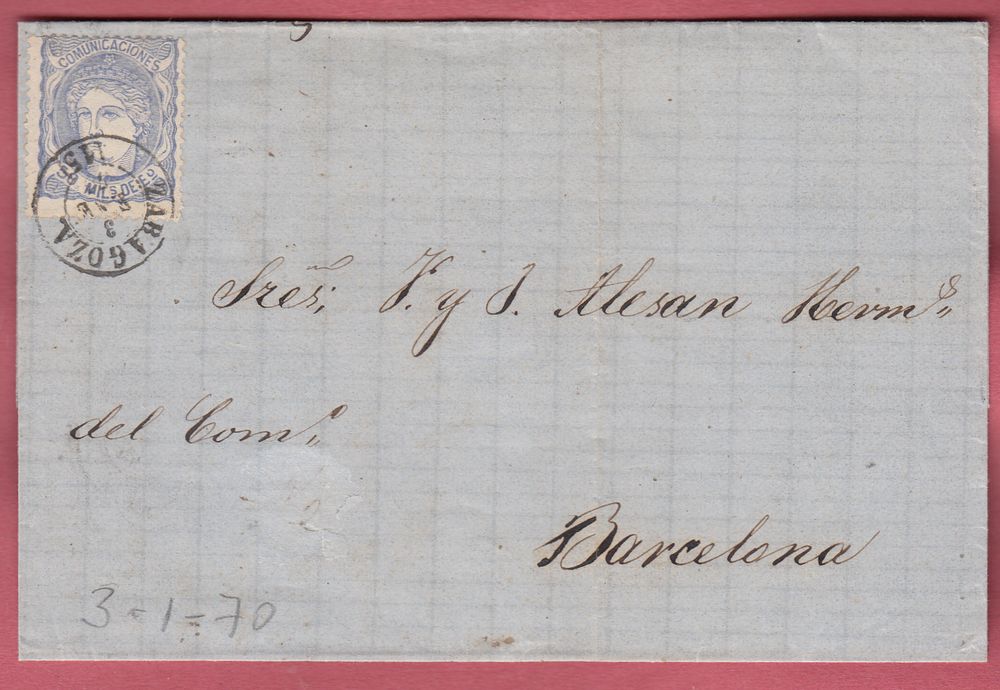 COMUNICACIONES
50 MILS. DE Eo
ZARAGOZA
3
Sres. V. y J. Alesan Herms.
del Como.
Barcelona
3-1-70